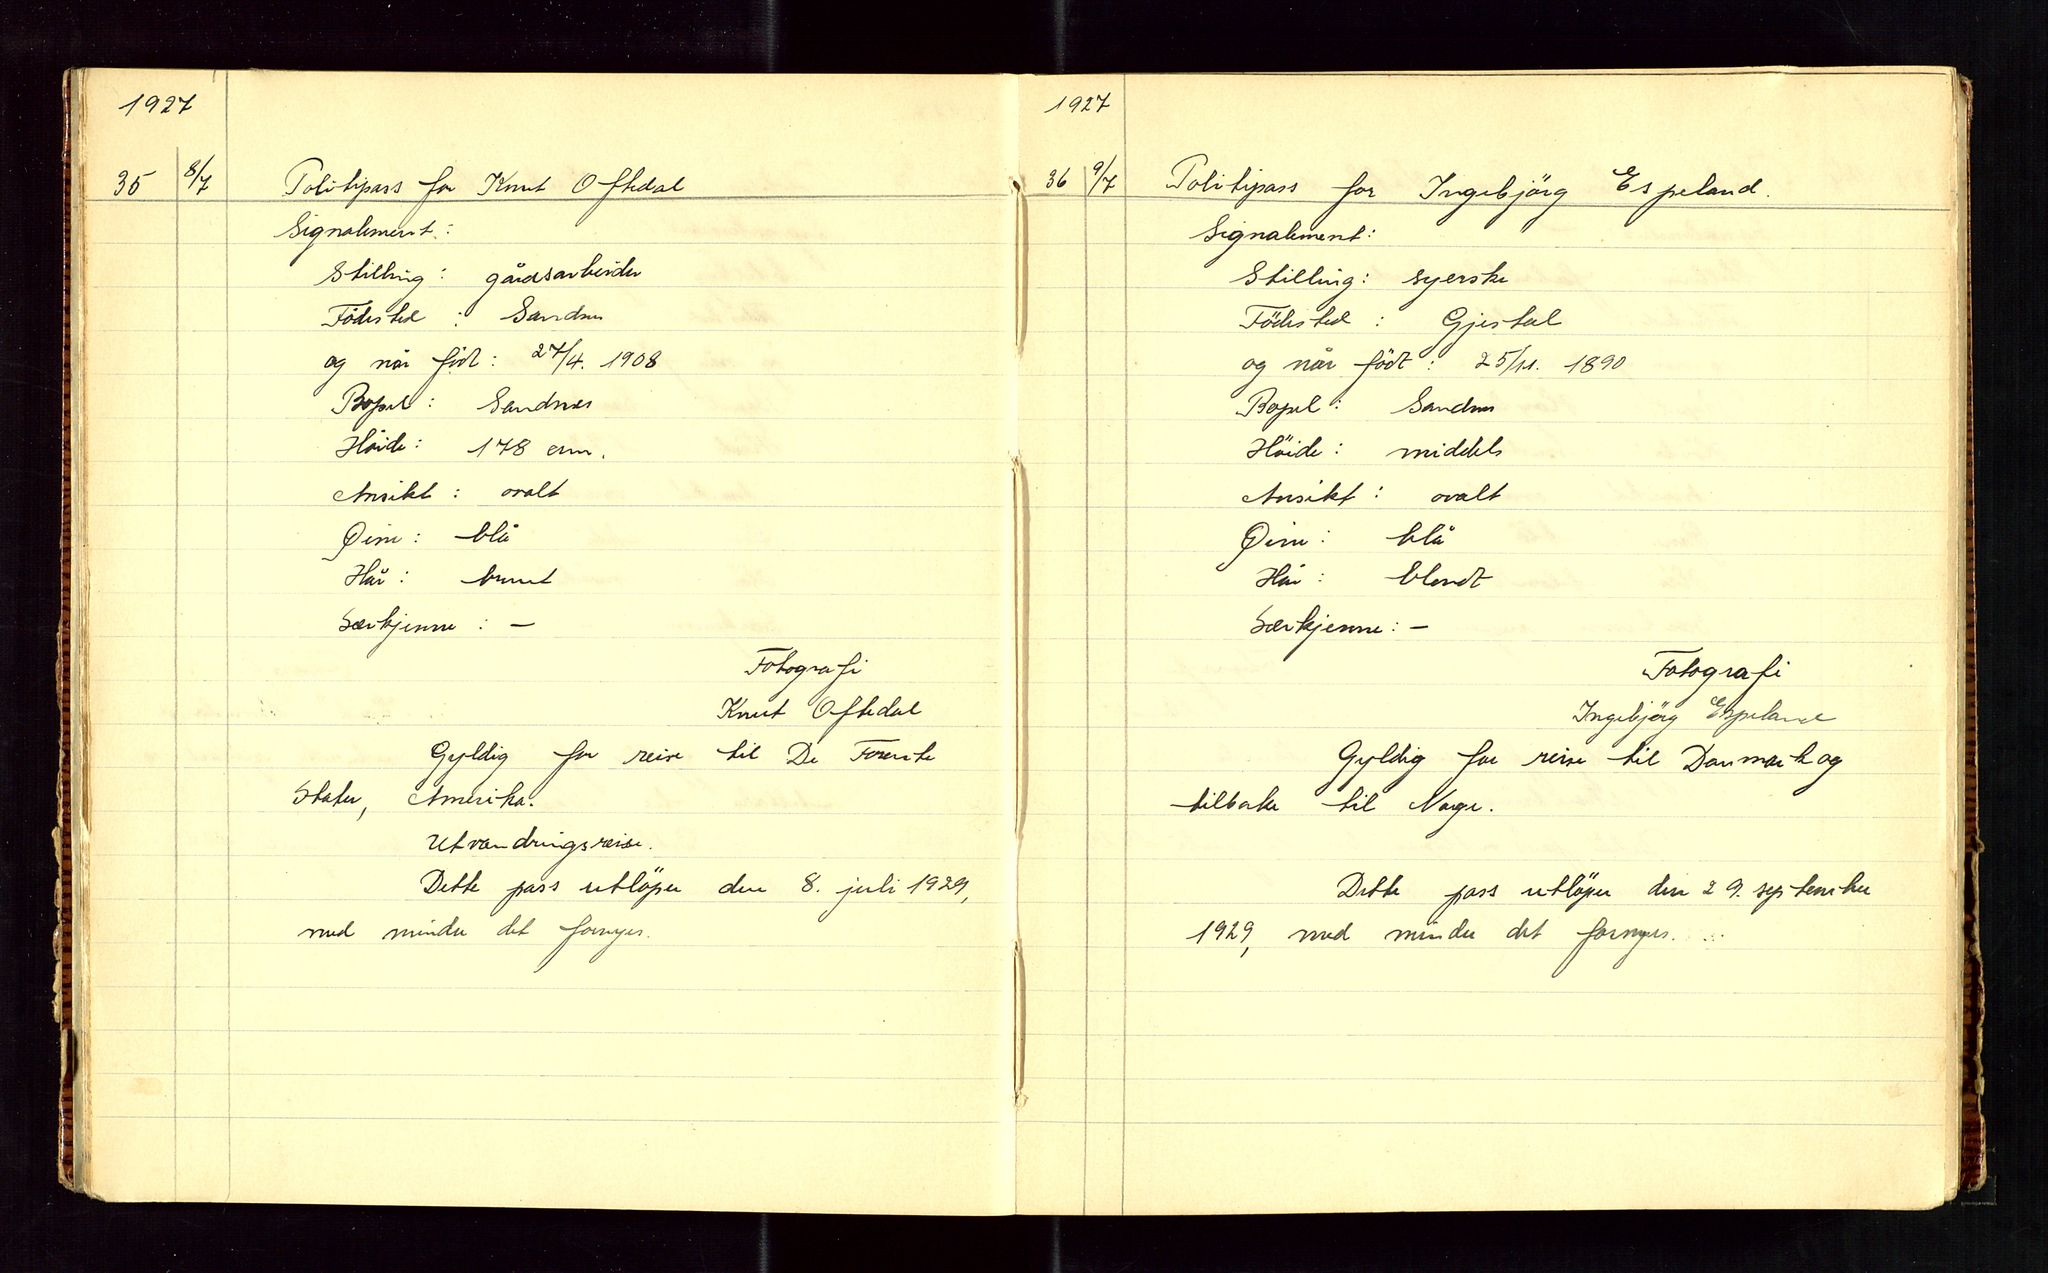 1927
35 8/7 Politipass for Knut Oftedal
Signalement:
Stilling: gårdsarbeider
Födested: Sandnes
og når födt: 27/4. 1908
Bopel: Sandnes
Höide: 178 cm.
Ansikt: ovalt
Øine: blå
Hår: brunt
Særkjenne: —
Fotografi
Knut Oftedal
Gyldig for reise til De Forente
Stater, Amerika.
Utvandringsreise.
Dette pass utlöper den 8. juli 1929,
med mindre det fornyes.
1927
36 9/7 Politipass for Ingebjörg Espeland.
Signalement:
Stilling: syerske
Födested: Gjestal
og når födt: 25/11. 1890
Bopel: Sandnes
Höide: middels
Ansikt: ovalt
Øine: blå
Hår: blondt
Særkjenne: —
Fotografi
Ingebjörg Espeland
Gyldig for reise til Danmark og
tilbake til Norge.
Dette pass utlöper den 29. september
1929, med mindre det fornyes.